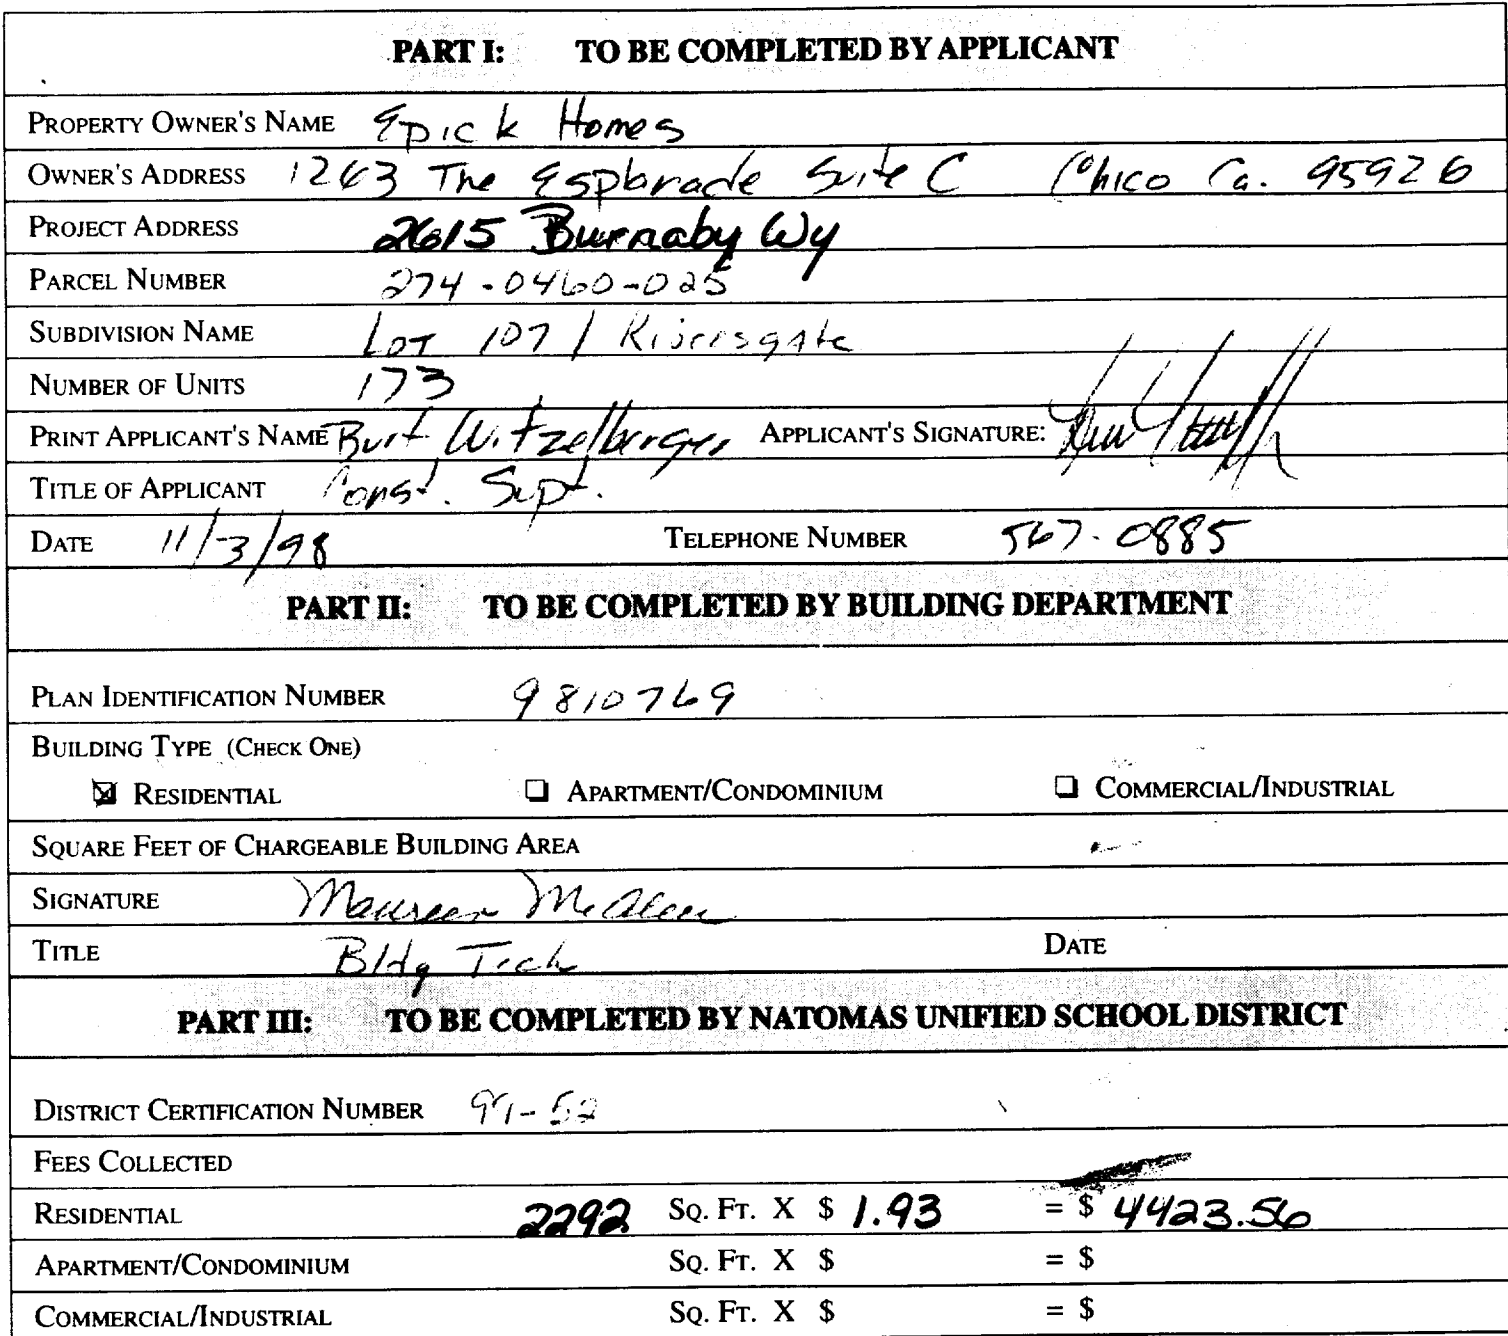 PART I: TO BE COMPLETED BY APPLICANT
PROPERTY OWNER'S NAME Epick Homes
OWNER'S ADDRESS 1263 The Esplanade Suite C Chico Ca. 95926
PROJECT ADDRESS 2615 Burnaby Wy
PARCEL NUMBER 274-0460-025
SUBDIVISION NAME LOT 107 / Riversgate
NUMBER OF UNITS 173
PRINT APPLICANT'S NAME Burt Witzelberger APPLICANT'S SIGNATURE:
TITLE OF APPLICANT Const. Supt.
DATE 11/3/98 TELEPHONE NUMBER 567-0885
PART II: TO BE COMPLETED BY BUILDING DEPARTMENT
PLAN IDENTIFICATION NUMBER 9810769
BUILDING TYPE (CHECK ONE)
☒ RESIDENTIAL ☐ APARTMENT/CONDOMINIUM ☐ COMMERCIAL/INDUSTRIAL
SQUARE FEET OF CHARGEABLE BUILDING AREA
SIGNATURE Maureen
TITLE Bldg Tech DATE
PART III: TO BE COMPLETED BY NATOMAS UNIFIED SCHOOL DISTRICT
DISTRICT CERTIFICATION NUMBER 99-52
FEES COLLECTED
RESIDENTIAL 2292 SQ. FT. X $ 1.93 = $ 4423.56
APARTMENT/CONDOMINIUM SQ. FT. X $ = $
COMMERCIAL/INDUSTRIAL SQ. FT. X $ = $